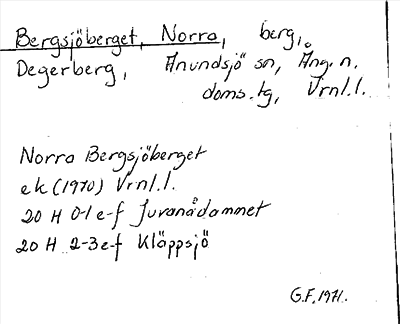 Bergsjöberget, Norra, berg,
Degerberg, Anundsjö sn, Ång. n.
doms.tg, Vrnl.l.
Norra Bergsjöberget
ek (1970) Vrnl.l.
20 H 0-1 e-f Juvanådammet
20 H 2-3 e-f Kläppsjö
G.F. 1971.